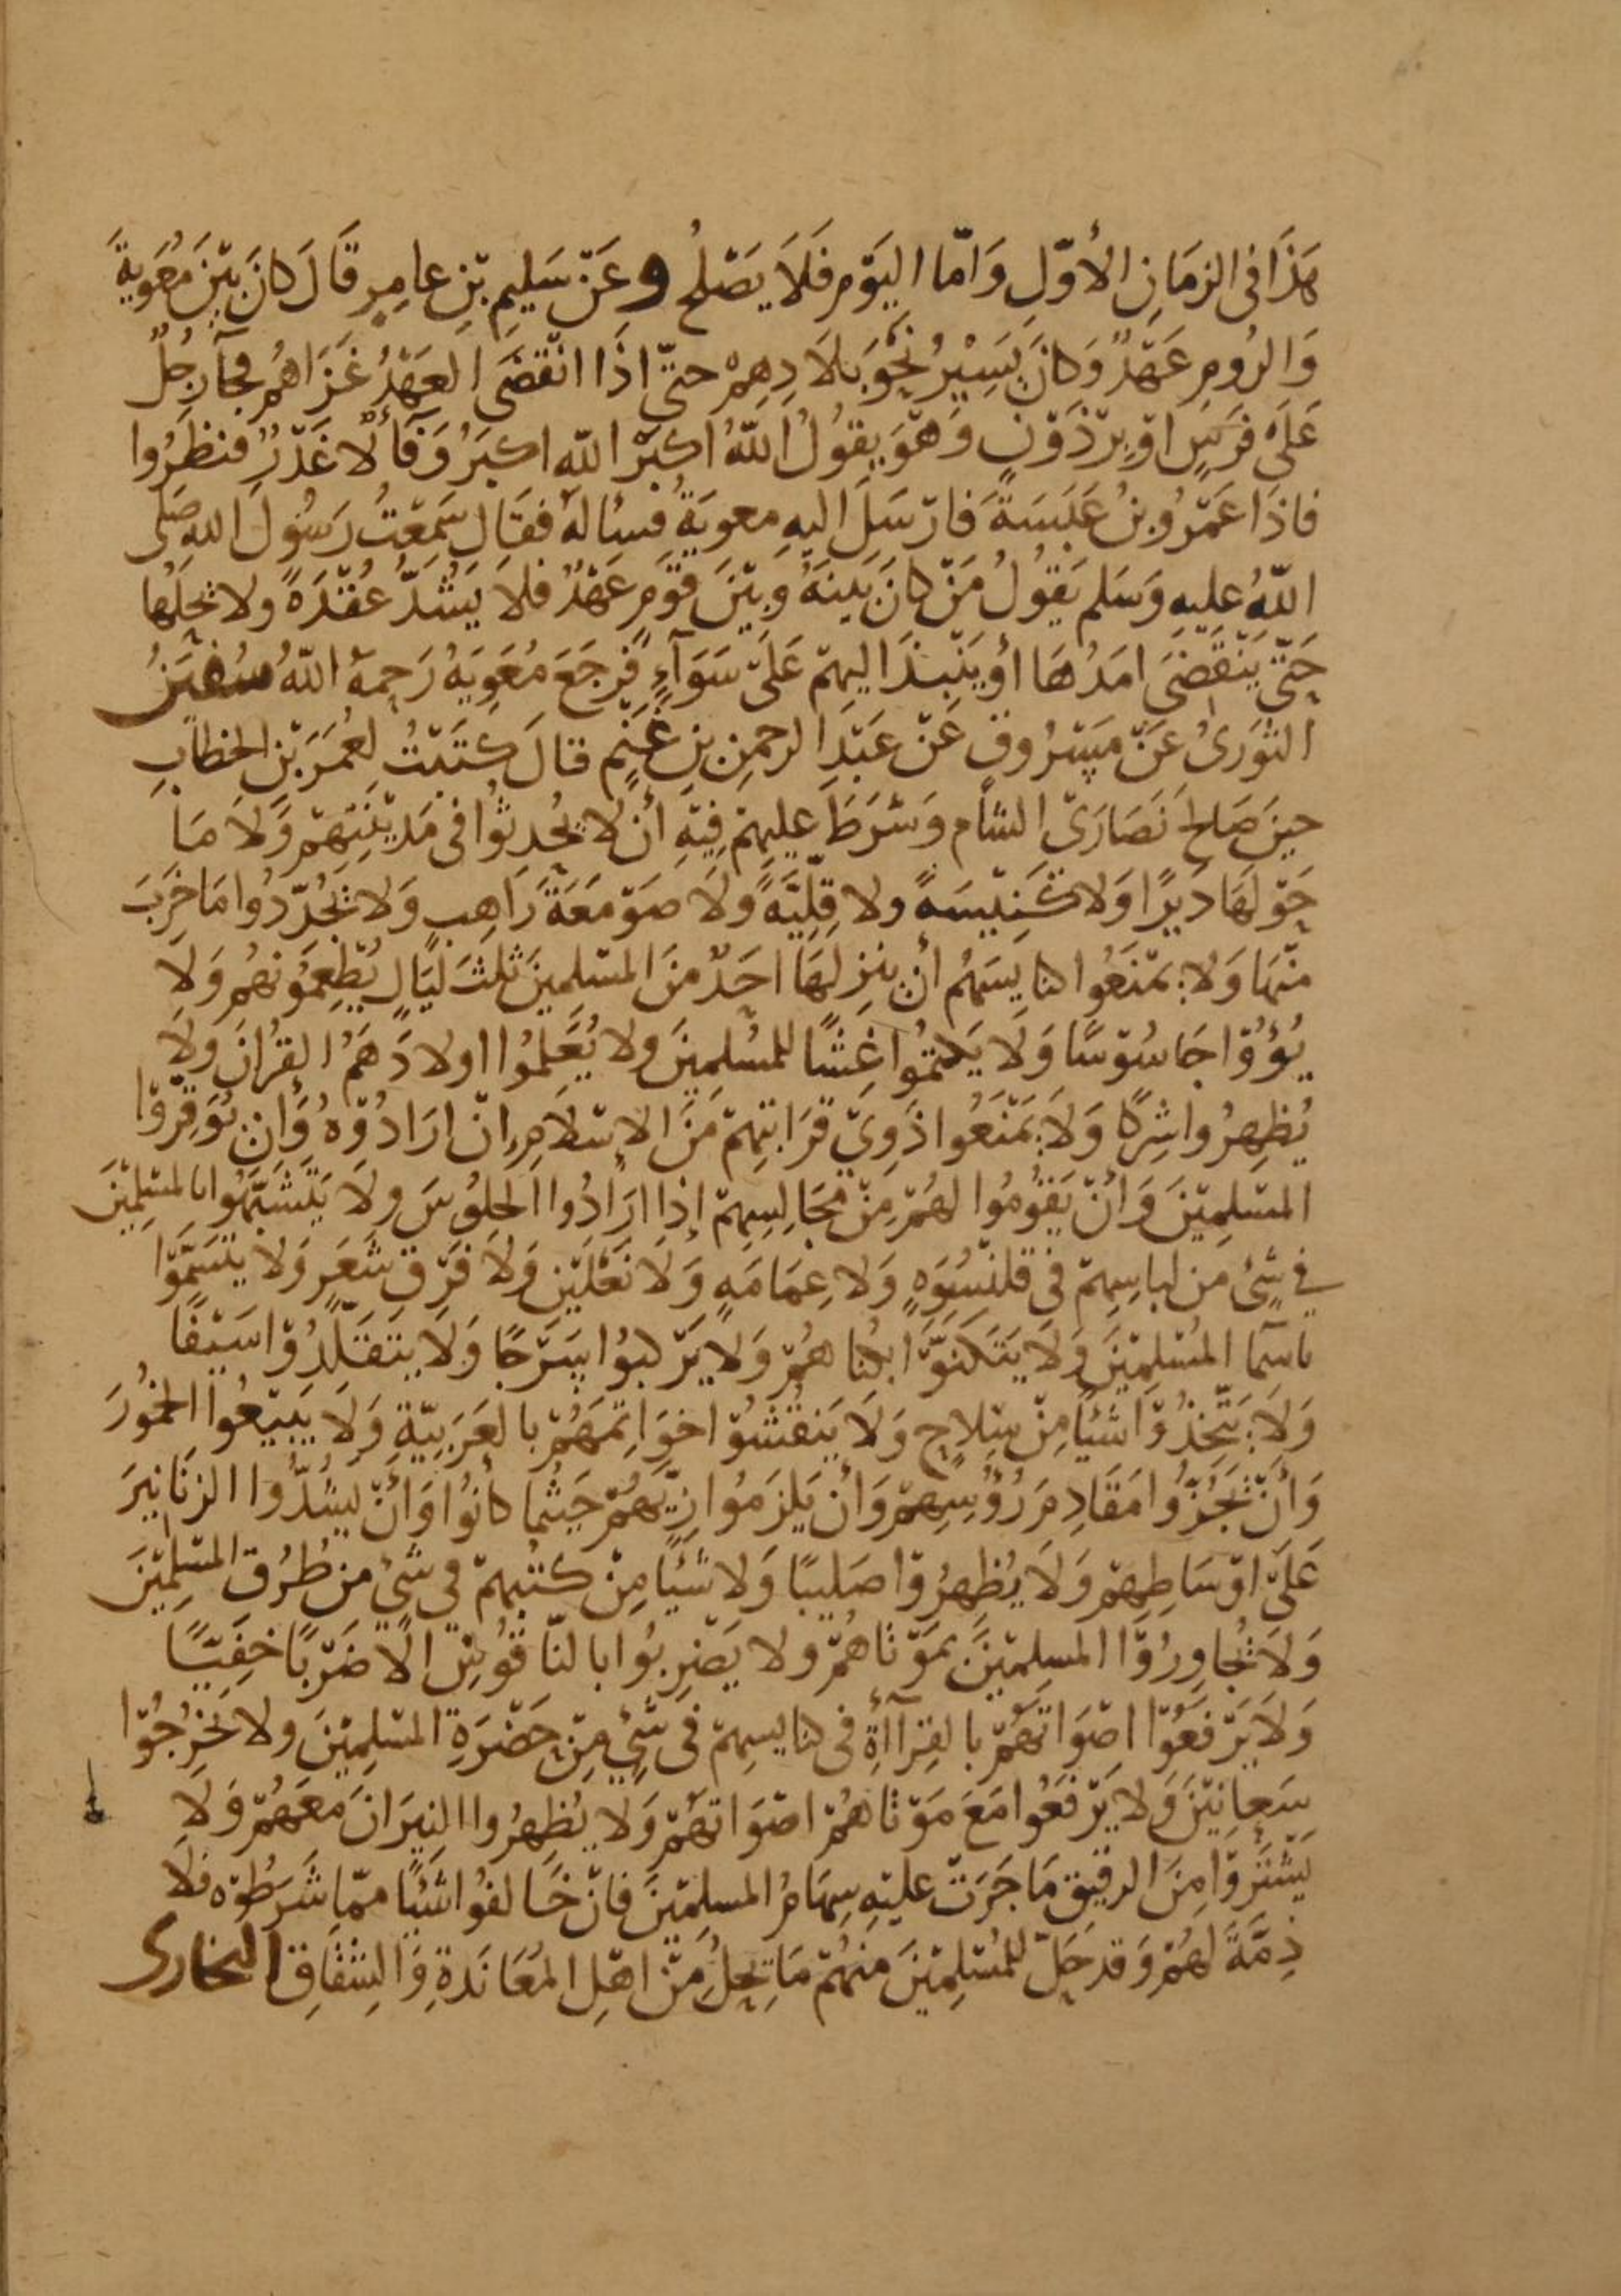 هَذَا فى الزمَانِ الأوّلِ وَامّا اليَوْمِ فَلَا يَصْلحُ وعَنْ سَلِيمِ بْنِ عامِرٍ قَالَ كانَ بَيْنَ مُعَوِيةَ
وَالرُومِ عَهْدٌ وَكانَ يَسِيْرُ نَحْوَ بَلَادِهِمْ حتّى اذَا انْقَضَى العَهْدُ غَزَاهُمْ فجآء رَجُلٌ
عَلَى فَرَسٍ اوْ بِرْذَوْنٍ وَهْوَ يقُولُ اللّهُ اكبَرْ اللّه اكبَرُ وَفَأٌ لَا غَدْرٌ فنظَرُوا
فاذَا عَمْرُو بنُ عَبَسَةَ فَارْسَلَ اليهِ معويَةُ فسالهُ فقَال سَمِعْتُ رَسُولَ اللهِ صَلى
اللّهُ عليهِ وَسَلم يَقولُ مَنْ كانَ بَينَهُ وبيْنَ قوْمٍ عَهْدٌ فلَا يَشُدَّ عُقْدَةً ولا يحلّها
حَتّى يَنْقضَى امَدُهَا أو يَنْبذَ اليهِمْ عَلَى سَوَآءٍ فرجَعَ مُعَوِيَهُ رَحِمهُ اللّهُ سُفيَنُ
الثوْرىُ عَنْ مَسْرُوقٍ عَنْ عَبْدِ الرحمنِ بنِ غَنْمٍ قالَ كتَبْتُ لعُمَرَ بْنِ الخطابِ
حينَ صَالح نَصَارَى الشأم وَشرَطَ عليهِمْ فِيْهِ أن لا يُحْدِثوُا فى مَديْنتِهِمْ وَلَا مَا
حَوْلهَا دَيرًا وَلا كَنِيْسَهً ولا قِلِّيَّهً ولَا صَوْمَعَةَ رَاهِبٍ وَلا يُجَدّدُوا مَا خَرِبَ
منْهَا وَلا يمنَعُوا كنايسَهُم أن ينزلهَا احَدٌ منَ المسْلمينَ ثلثَ ليَالٍ يُطْعِمُونهُم وَلَا
يُؤوُوْا جَاسُوْسًا وَلَا يَكتمُوا غِشًّا للمسْلِمِينَ ولا يُعَلِمُوا اولادَهُمُ القرُانَ وَلا
يُظهِرُوا شِركًا وَلَا يَمْنَعُوا ذَوِىْ قَرَابتِهِمْ مِنَ الإسْلَامِ انْ ارَادُوْهُ وَان يُوَقِّرُوْا
المسْلِمِيْنَ وَانْ يَقوُمُوا لهُمْ مِنْ مجَالِسِهِمْ إذا ارَادُوا الجلوُسَ ولَا يَتَشَبَّهُوا بالمسْلِمِيْنَ
في شئ من لباسِهِمْ في قلنْسُوَهٍ وَلا عِمَامَهٍ وَلَا نَعْلَيْنِ وَلا فَرْقِ شَعَرٍ وَلا يتسَمَّوْا
باسمآ المسْلِمِيْنَ وَلَا يَتَكَنَوَّا بكُناهُمْ وَلا يَرْكبوُا سَرْجًا وَلَا يتقَلّدُوْا سَيْفًا
وَلَا يَتَّخِذُوْا شَيًا مِنْ سِلاحٍ وَلَا يَنقُشوُا خوَاتِمَهُمْ بالعَرَبيّةِ وَلَا يَبيْعُوا الخُمُورَ
وَأنْ يَجُزُّوا مَقَادِمَ رُؤُسِهِمْ وَأنْ يَلزَمُوا زِيَّهُمْ حَيثما كانوُا وَأنْ يشُدُّوا الزنَانيرَ
عَلَىْ اوْسَاطِهِمْ وَلَا يُظهرُوْا صَليبًا وَلا شَيًا مِنْ كتُبهِمْ في شَيٍ من طُرُقِ المسْلِمِيْنَ
وَلَا يُجَاوِرُوْا المسلِمِيْنَ بمَوْتاهُمْ ولا يَضْرِبوُا بالنّاقوُسِ الّا ضَرْبًا خفِيًّا
وَلَا يَرْفعُوْا اصْوَاتَهُمْ بالقرَاأةِ فى كنايسِهِمْ فى شَيٍ مِنْ حَضْرَةِ المسْلِمِيْنَ ولا يَخرُجُوْا
سِعانِيْنَ وَلا يَرْفعُوا مَعَ مَوْتاهُمْ اصْوَاتهُمْ وَلا يُظهِرُوا النِيرَانَ معَهُمْ وَلا
يَشْتَرُوْا مِنَ الرقيْقِ مَا جَرَتْ عليْهِ سِهَامُ المسلِمِيْنَ فانْ خَالفوُا شَيًا ممّا شَرَطُوْه فلَا
ذِمَّةَ لهُمْ وَقد حَلّ للمُسْلِمِيْنَ منهُمْ مَا يَحِلُ مِنْ اهْلِ المُعَانَدَةِ وَالشقَاقِ البخارى